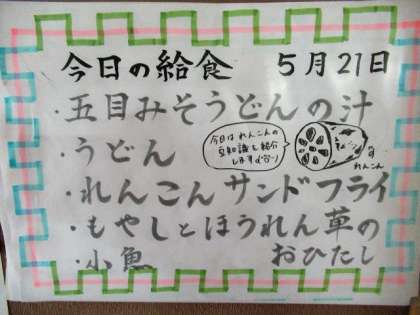 今日の給食 5月21日
・五目みそうどんの汁
・うどん
今日は れんこんの
豆知識を紹介
します
れんこん
・れんこんサンドフライ
・もやしとほうれん草の
おひたし
・小魚